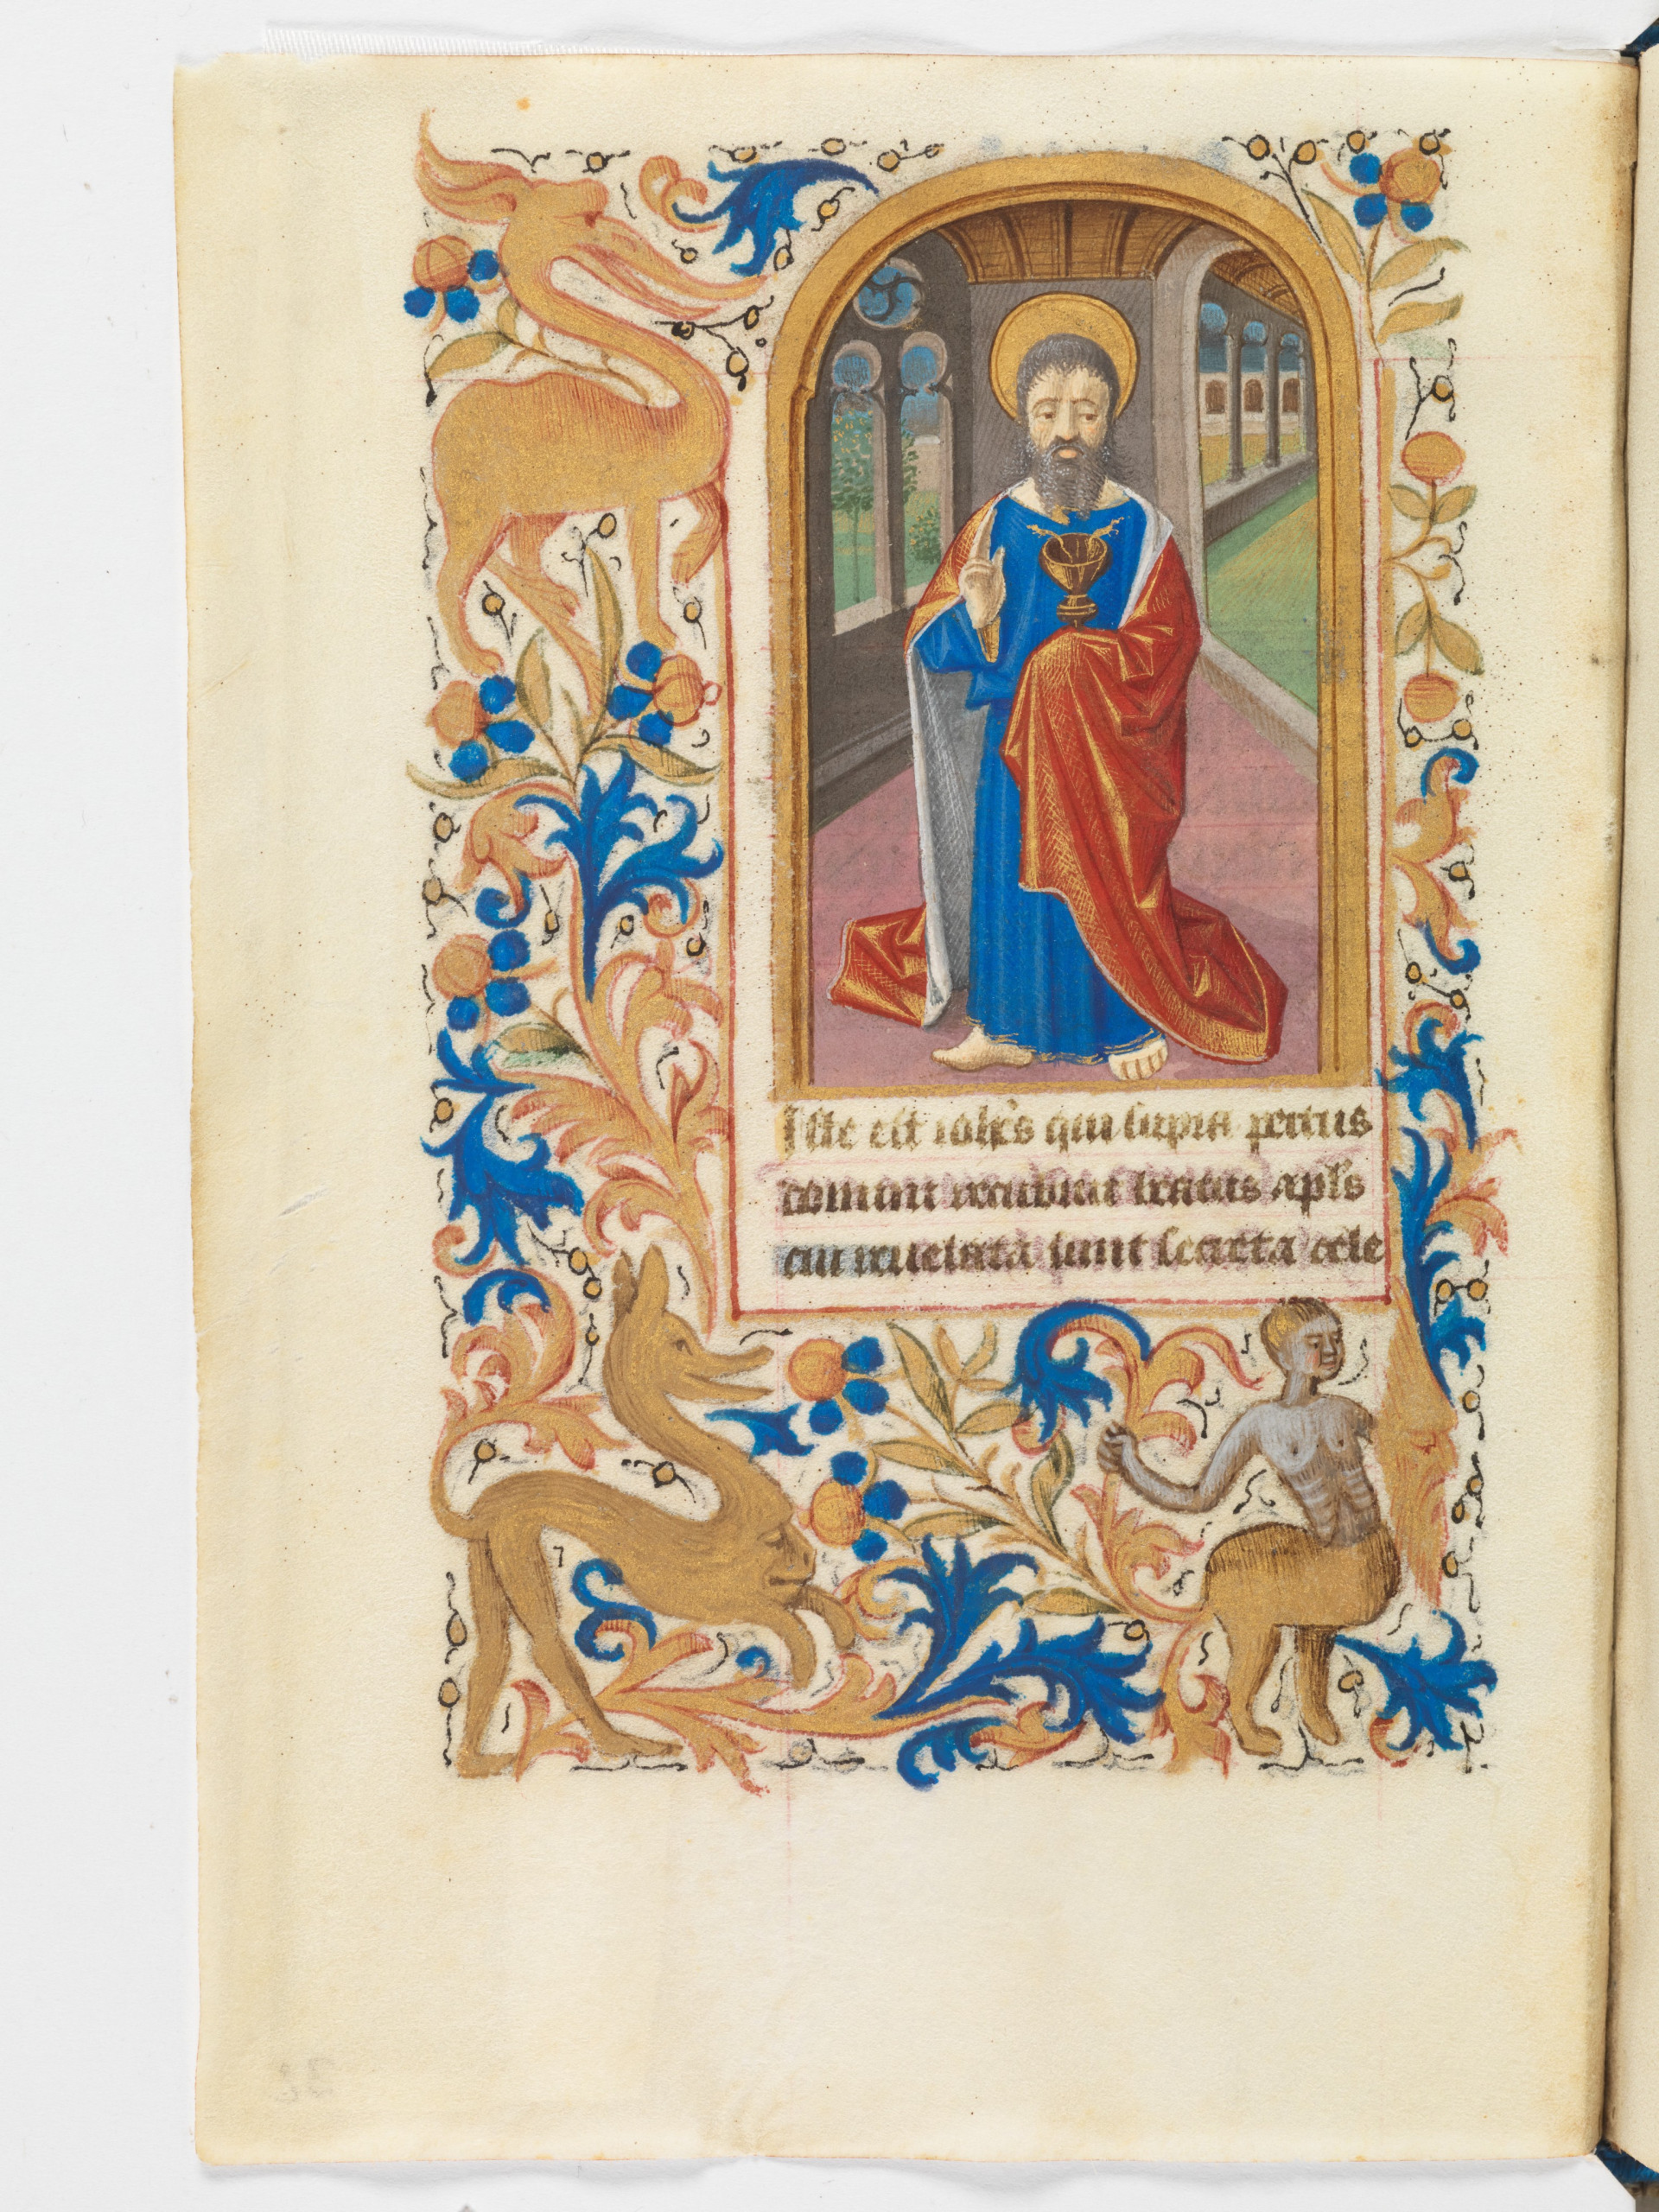 Iste est ioh̄es qui supra pectus
domini recubuit beatus apl̄s
cui reuelata sunt secreta cele